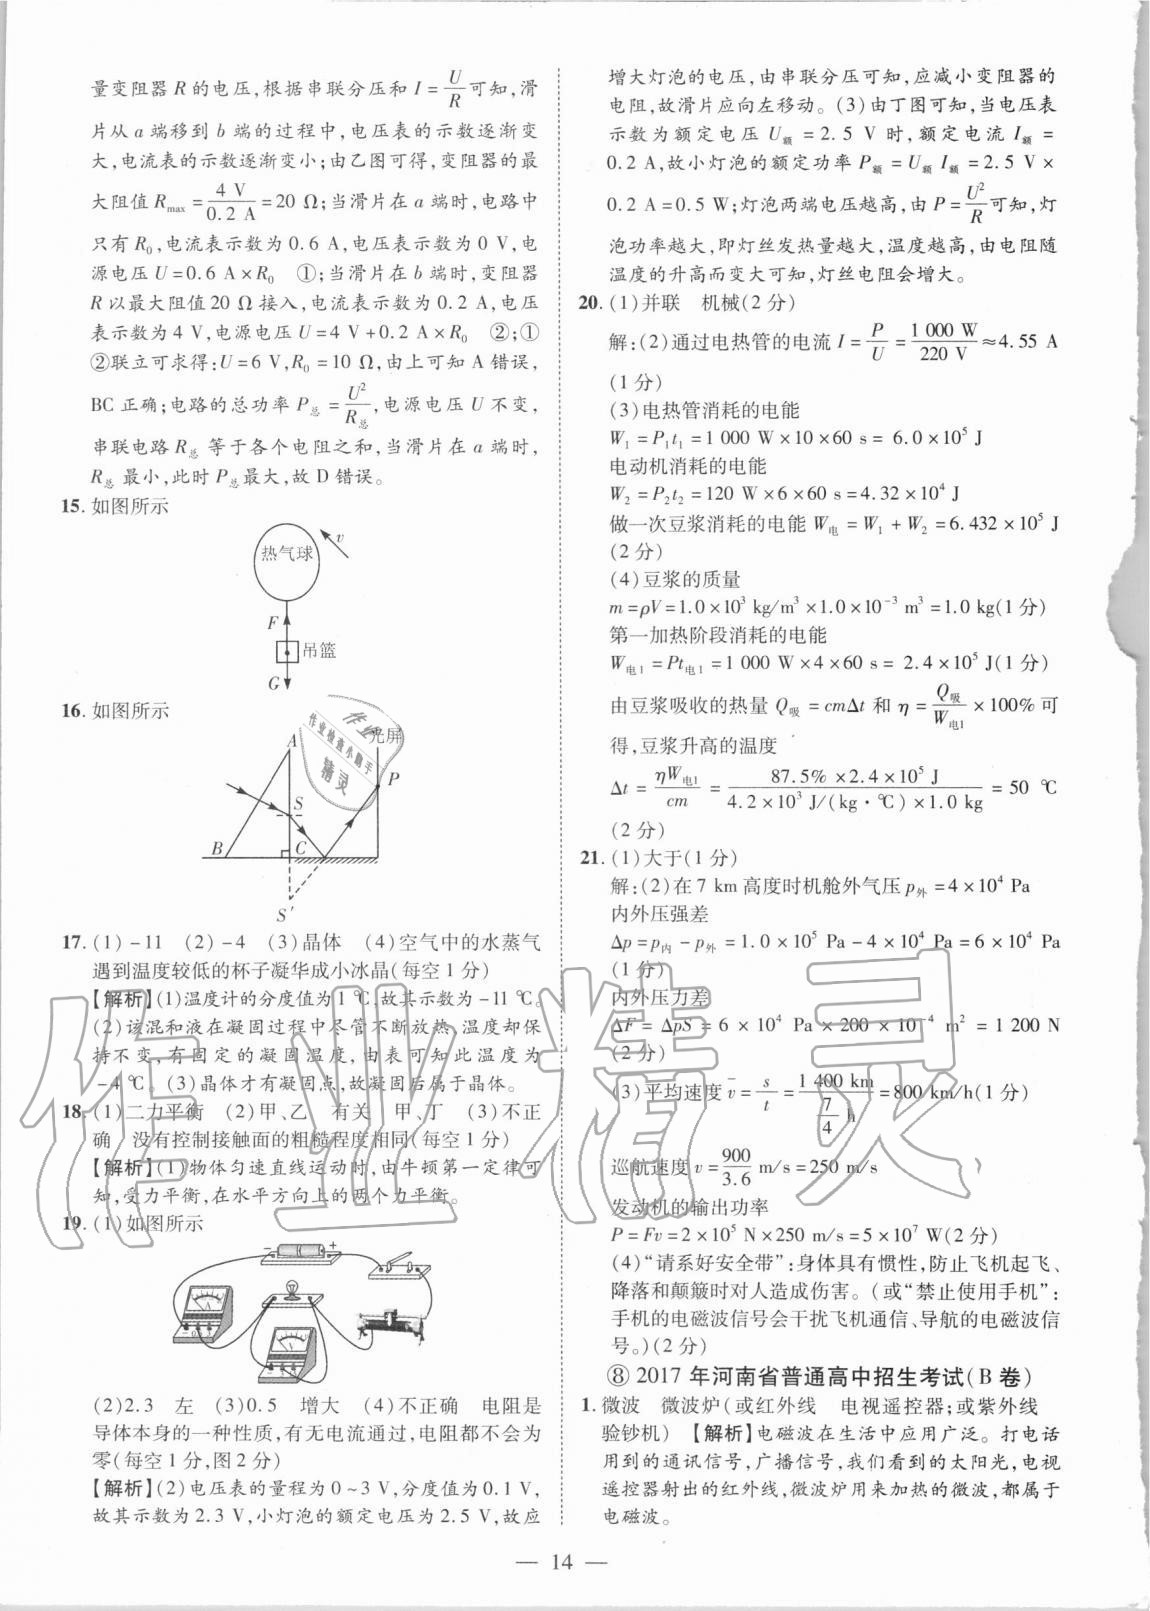 量变阻器 R 的电压,根据串联分压和 I = U/R 可知,滑
片从 a 端移到 b 端的过程中,电压表的示数逐渐变
大,电流表的示数逐渐变小;由乙图可得,变阻器的最
大阻值 Rmax = 4 V/0.2 A = 20 Ω;当滑片在 a 端时,电路中
只有 R₀,电流表示数为 0.6 A,电压表示数为 0 V,电
源电压 U = 0.6 A × R₀ ①;当滑片在 b 端时,变阻器
R 以最大阻值 20 Ω 接入,电流表示数为 0.2 A,电压
表示数为 4 V,电源电压 U = 4 V + 0.2 A × R₀ ②;①
②联立可求得:U = 6 V,R₀ = 10 Ω,由上可知 A 错误,
BC 正确;电路的总功率 P总 = U²/R总,电源电压 U 不变,
串联电路 R总 等于各个电阻之和,当滑片在 a 端时,
R总 最小,此时 P总 最大,故 D 错误。
15. 如图所示
热气球
v
F
吊篮
G
16. 如图所示
光屏
A
P
S
B
C
S′
作业
作业检查小助手
精灵
17. (1) -11 (2) -4 (3)晶体 (4)空气中的水蒸气
遇到温度较低的杯子凝华成小冰晶(每空 1 分)
【解析】(1)温度计的分度值为 1 ℃,故其示数为 -11 ℃。
(2)该混和液在凝固过程中尽管不断放热,温度却保
持不变,有固定的凝固温度,由表可知此温度为
-4 ℃。(3)晶体才有凝固点,故凝固后属于晶体。
18. (1)二力平衡 (2)甲、乙 有关 甲、丁 (3)不正
确 没有控制接触面的粗糙程度相同(每空 1 分)
【解析】(1)物体匀速直线运动时,由牛顿第一定律可
知,受力平衡,在水平方向上的两个力平衡。
19. (1)如图所示
- +
A
V
(2)2.3 左 (3)0.5 增大 (4)不正确 电阻是
导体本身的一种性质,有无电流通过,电阻都不会为
零(每空 1 分,图 2 分)
【解析】(2)电压表的量程为 0~3 V,分度值为 0.1 V,
故其示数为 2.3 V,小灯泡的额定电压为 2.5 V,故应
增大灯泡的电压,由串联分压可知,应减小变阻器的
电阻,故滑片应向左移动。(3)由丁图可知,当电压表
示数为额定电压 U额 = 2.5 V 时,额定电流 I额 =
0.2 A,故小灯泡的额定功率 P额 = U额 I额 = 2.5 V ×
0.2 A = 0.5 W;灯泡两端电压越高,由 P = U²/R 可知,灯
泡功率越大,即灯丝发热量越大,温度越高,由电阻随
温度的升高而变大可知,灯丝电阻会增大。
20. (1)并联 机械(2 分)
解:(2)通过电热管的电流 I = P/U = 1 000 W/220 V ≈ 4.55 A
(1 分)
(3)电热管消耗的电能
W₁ = P₁t₁ = 1 000 W × 10 × 60 s = 6.0 × 10⁵ J
电动机消耗的电能
W₂ = P₂t₂ = 120 W × 6 × 60 s = 4.32 × 10⁴ J
做一次豆浆消耗的电能 W电 = W₁ + W₂ = 6.432 × 10⁵ J
(2 分)
(4)豆浆的质量
m = ρV = 1.0 × 10³ kg/m³ × 1.0 × 10⁻³ m³ = 1.0 kg(1 分)
第一加热阶段消耗的电能
W电1 = Pt电1 = 1 000 W × 4 × 60 s = 2.4 × 10⁵ J(1 分)
由豆浆吸收的热量 Q吸 = cmΔt 和 η = Q吸/W电1 × 100% 可
得,豆浆升高的温度
Δt = ηW电1/cm = 87.5% × 2.4 × 10⁵ J/4.2 × 10³ J/(kg · ℃) × 1.0 kg = 50 ℃
(2 分)
21. (1)大于(1 分)
解:(2)在 7 km 高度时机舱外气压 p外 = 4 × 10⁴ Pa
内外压强差
Δp = p内 - p外 = 1.0 × 10⁵ Pa - 4 × 10⁴ Pa = 6 × 10⁴ Pa
(1 分)
内外压力差
ΔF = ΔpS = 6 × 10⁴ Pa × 200 × 10⁻⁴ m² = 1 200 N
(2 分)
(3)平均速度 v̄ = s/t = 1 400 km/(7/4 h) = 800 km/h(1 分)
巡航速度 v = 900/3.6 m/s = 250 m/s
发动机的输出功率
P = Fv = 2 × 10⁵ N × 250 m/s = 5 × 10⁷ W(2 分)
(4)“请系好安全带”:身体具有惯性,防止飞机起飞、
降落和颠簸时对人造成伤害。(或“禁止使用手机”:
手机的电磁波信号会干扰飞机通信、导航的电磁波信
号。)(2 分)
⑧ 2017 年河南省普通高中招生考试(B 卷)
1. 微波 微波炉(或红外线 电视遥控器;或紫外线
验钞机) 【解析】电磁波在生活中应用广泛。打电话
用到的通讯信号,广播信号,我们看到的太阳光,电视
遥控器射出的红外线,微波炉用来加热的微波,都属于
电磁波。
作业精灵
— 14 —